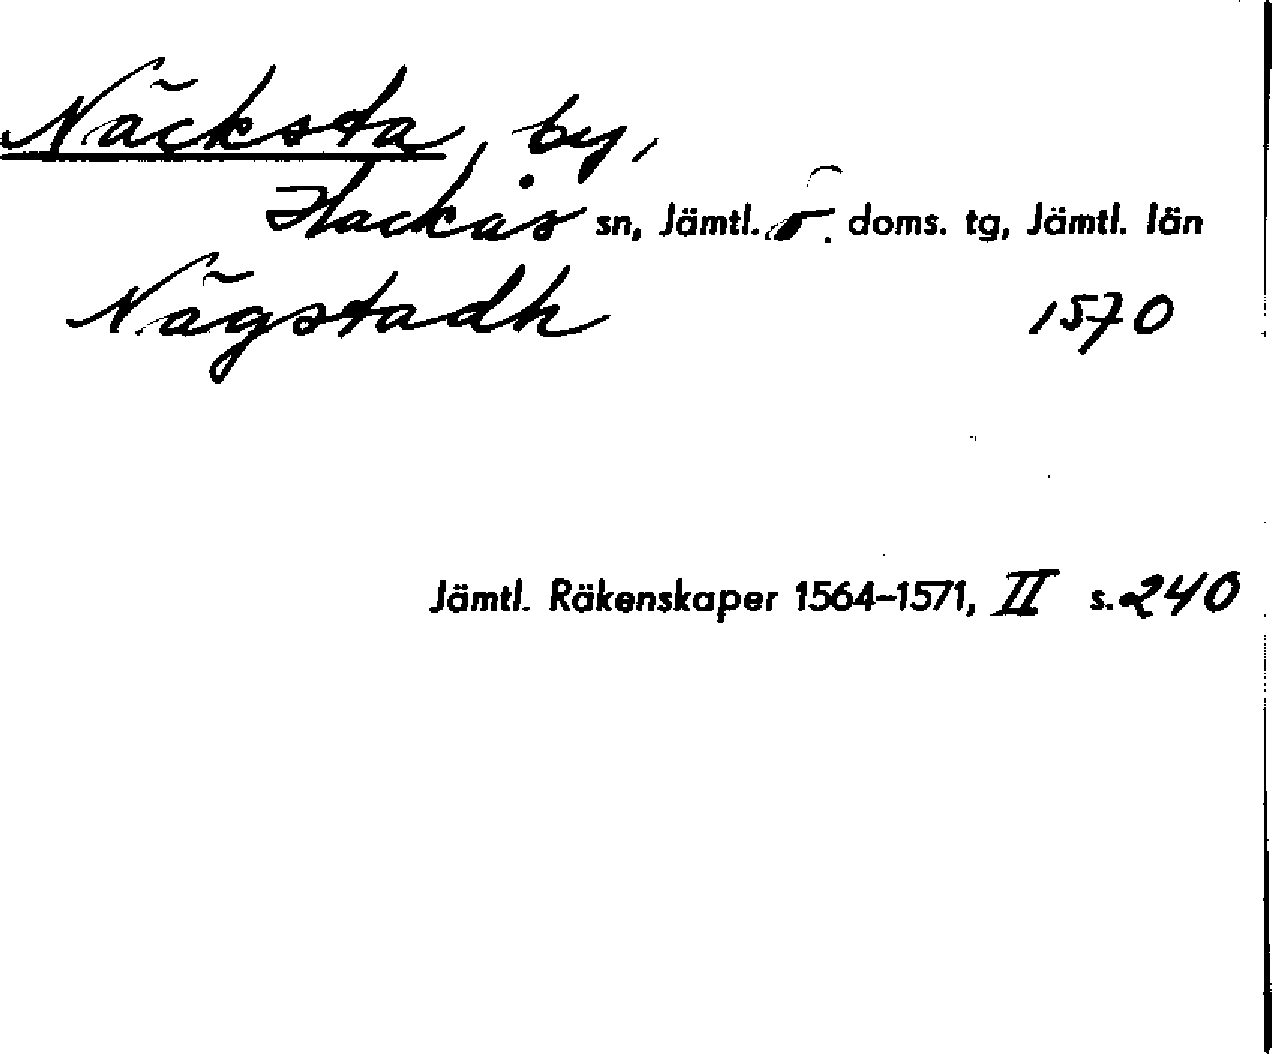 Näcksta, by,
Hackås sn, Jämtl. ö. doms. tg, Jämtl. län
Nägstadh 1570
Jämtl. Räkenskaper 1564–1571, II s. 240